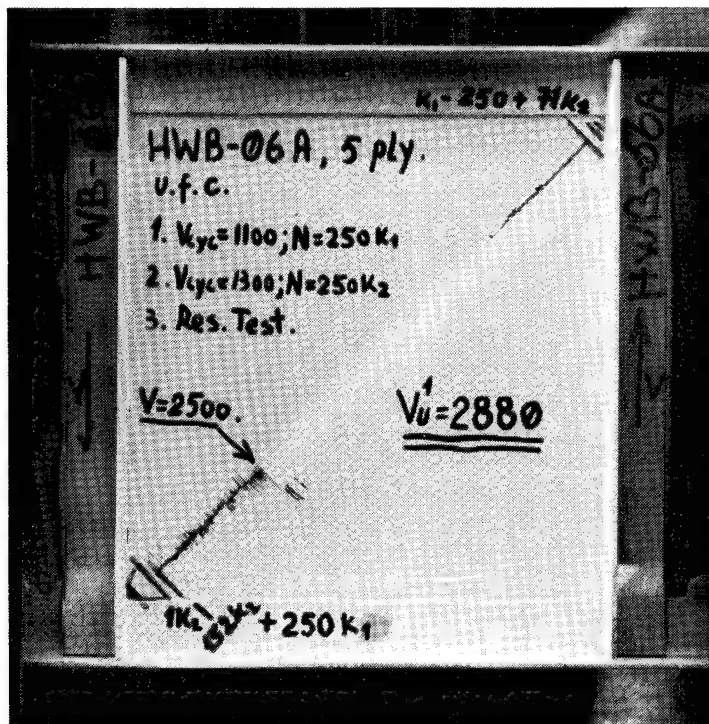 K₁-250+71K₂
HWB-06A, 5 ply.
u.f.c.
1. Vcyc=1100; N=250K₁
2. Vcyc=1300; N=250K₂
3. Res. Test.
V=2500.
Vu¹=2880
1K₂
+250K₁
HWB-
HWB-06A